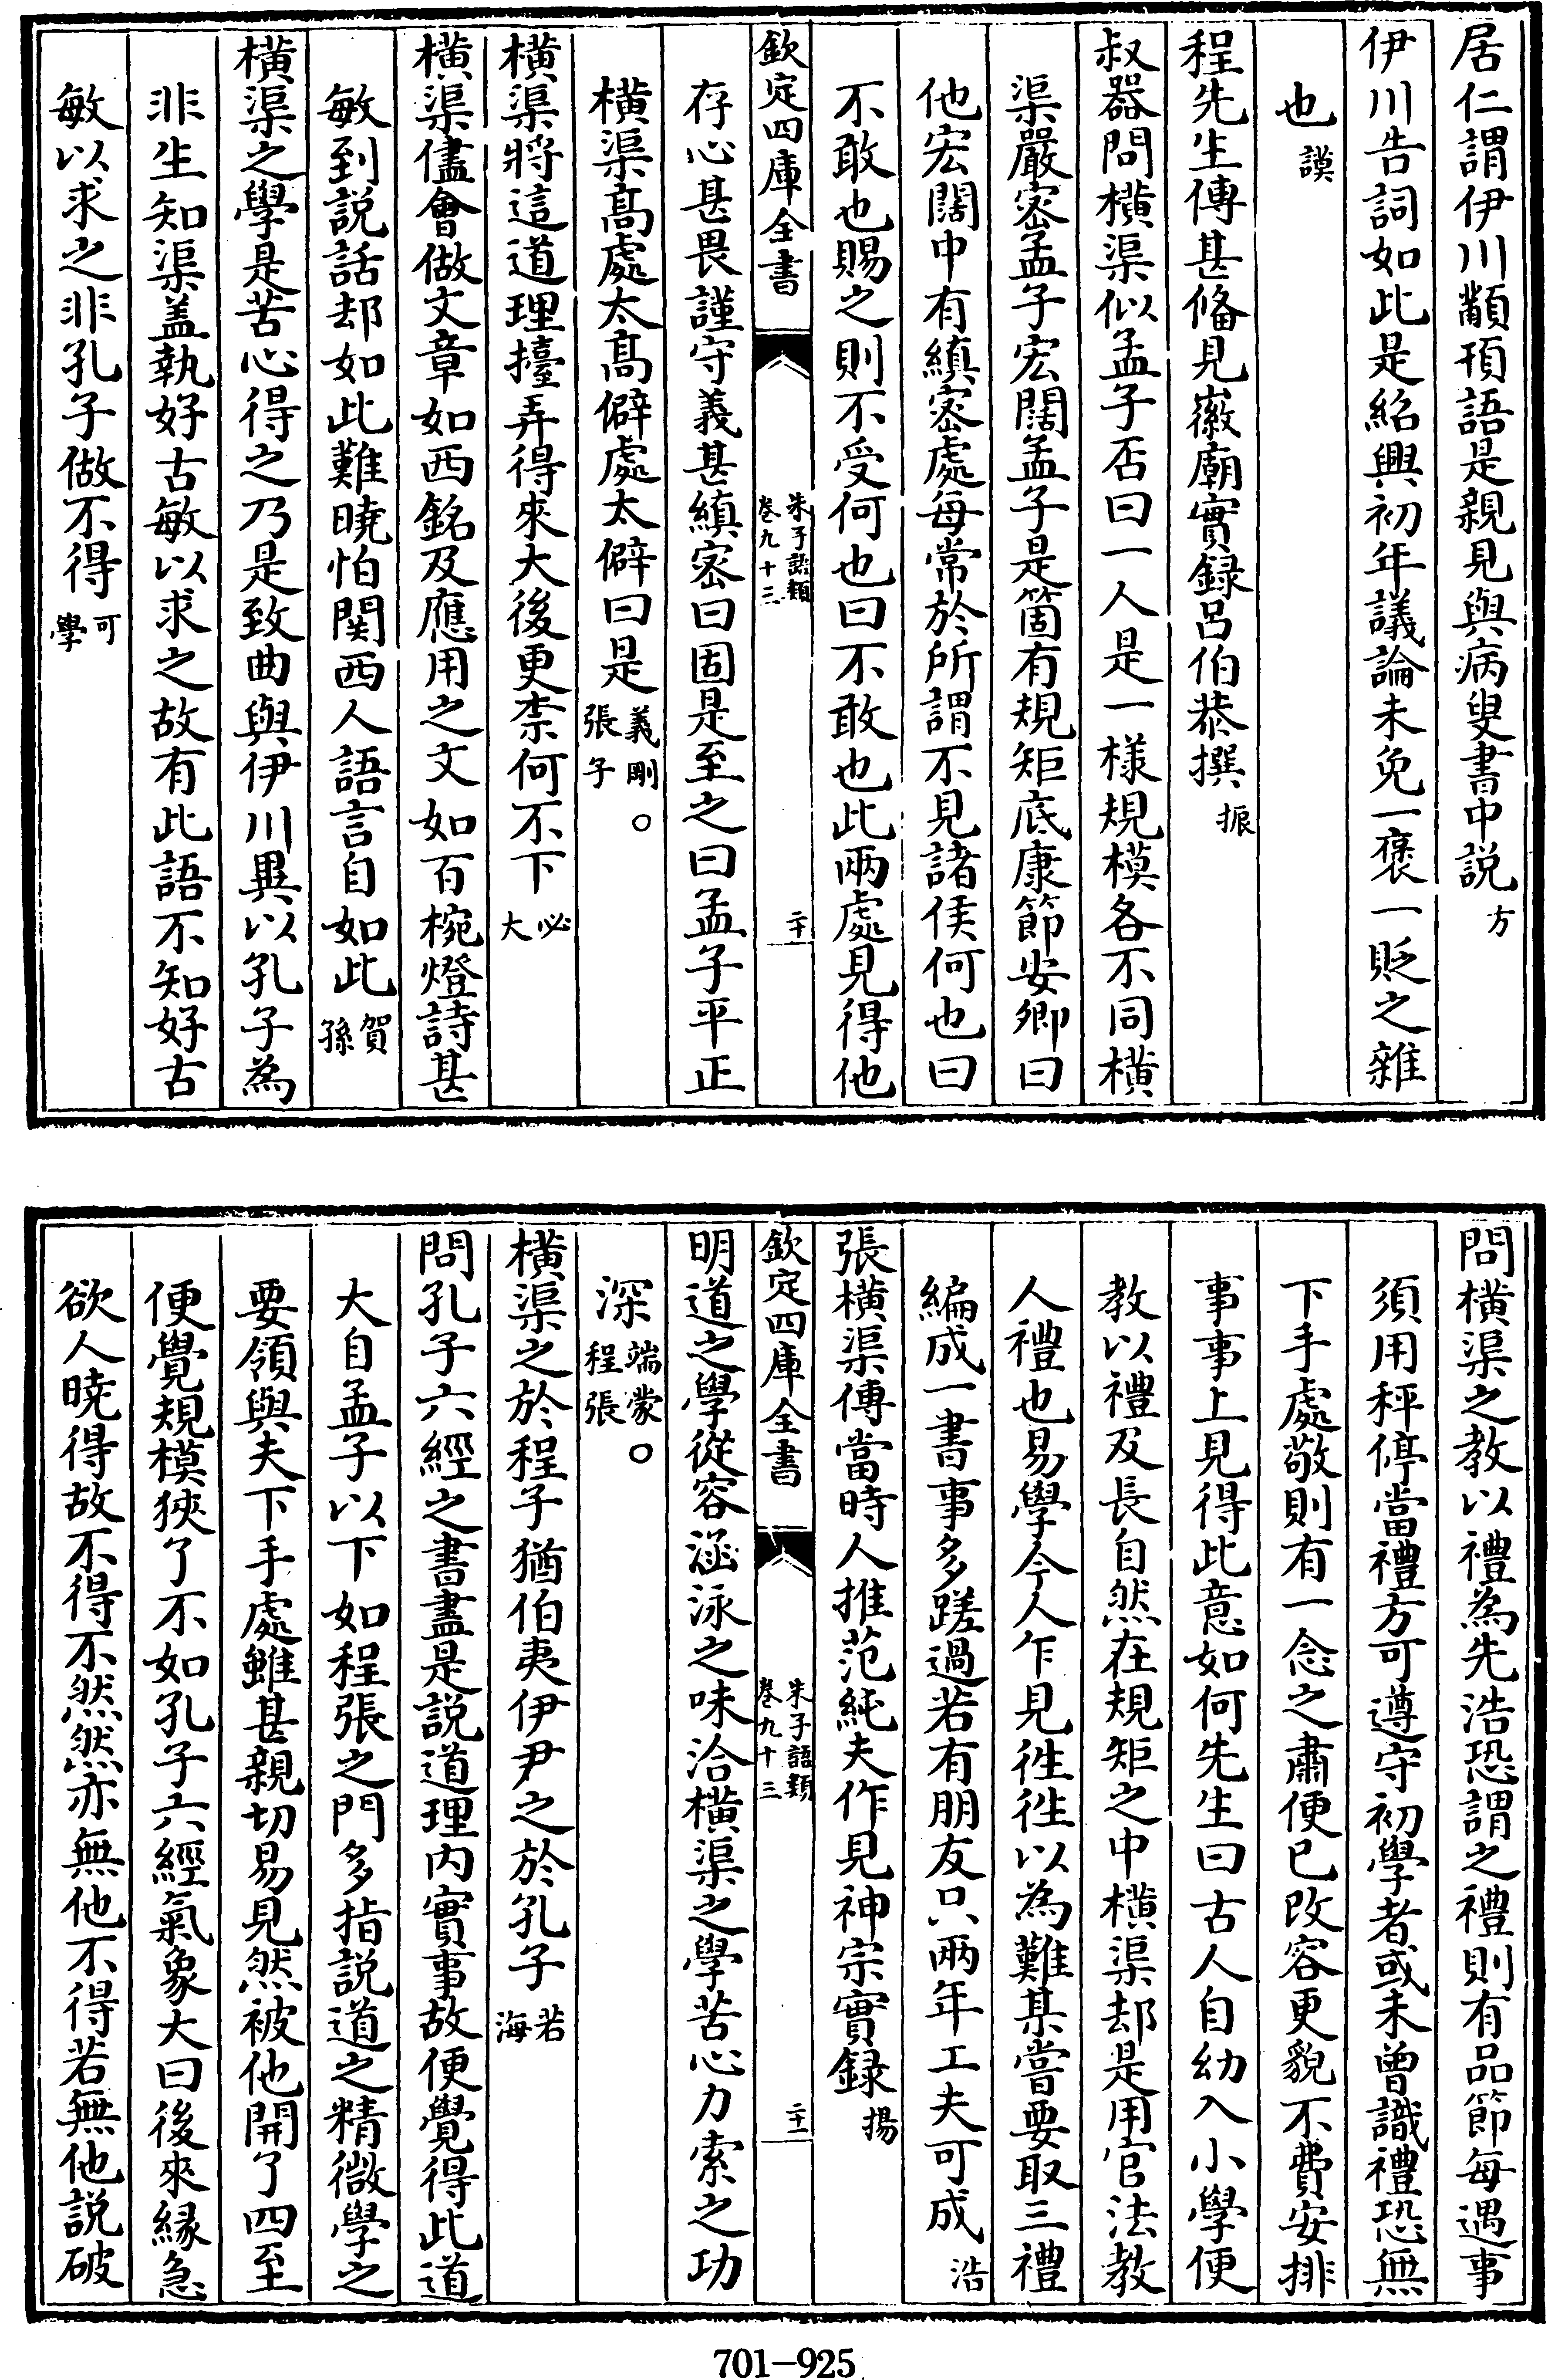 居仁謂伊川顢頇語是親見與病叟書中説方
伊川告詞如此是紹興初年議論未免一褒一貶之雜
也謨
程先生傳甚脩見徽廟實録呂伯恭撰振
叔器問橫渠似孟子否曰一人是一樣規模各不同橫
渠嚴宻孟子宏闊孟子是箇有規矩底康節安卿曰
他宏闊中有縝宻處每常於所謂不見諸侯何也曰
不敢也賜之則不受何也曰不敢也此兩處見得他
欽定四庫全書
朱子語類
卷九十三
二十
存心甚畏謹守義甚縝宻曰固是至之曰孟子平正
橫渠髙處太髙僻處太僻曰是義剛○張子
橫渠將這道理擡弄得來大後更柰何不下必大
橫渠儘會做文章如西銘及應用之文如百椀燈詩甚
敏到説話却如此難曉怕関西人語言自如此賀孫
橫渠之學是苦心得之乃是致曲與伊川異以孔子為
非生知渠盖執好古敏以求之故有此語不知好古
敏以求之非孔子做不得可學
問橫渠之教以禮為先浩恐謂之禮則有品節每遇事
須用秤停當禮方可遵守初學者或未曾識禮恐無
下手處敬則有一念之肅便已改容更貌不費安排
事事上見得此意如何先生曰古人自幼入小學便
教以禮及長自然在規矩之中橫渠却是用官法教
人禮也易學今人乍見徃徃以為難某嘗要取三禮
編成一書事多蹉過若有朋友只兩年工夫可成浩
張橫渠傳當時人推范純夫作見神宗實録揚
欽定四庫全書
朱子語類
卷九十三
二十一
明道之學從容涵泳之味洽橫渠之學苦心力索之功
深端蒙○程張
橫渠之於程子猶伯夷伊尹之於孔子若海
問孔子六經之書盡是説道理内實事故便覺得此道
大自孟子以下如程張之門多指説道之精微學之
要領與夫下手處雖甚親切易見然被他開了四至
便覺規模狹了不如孔子六經氣象大曰後來緣急
欲人曉得故不得不然然亦無他不得若無他説破
701-925